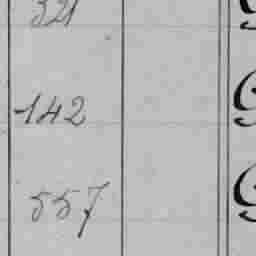 321
142
557